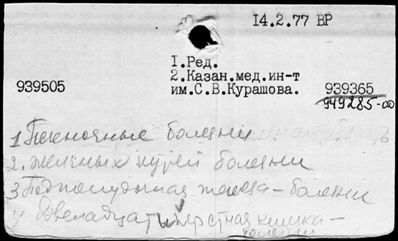 14.2.77 ВР
1.Ред.
2.Казан.мед.ин-т
939505 им.С.В.Курашова. 939365
949285-00
1 Печеночные болезни
2. желчных путей болезни
3 Поджелудочная железа - болезни
4 Двенадцатиперстная кишка -
болезни